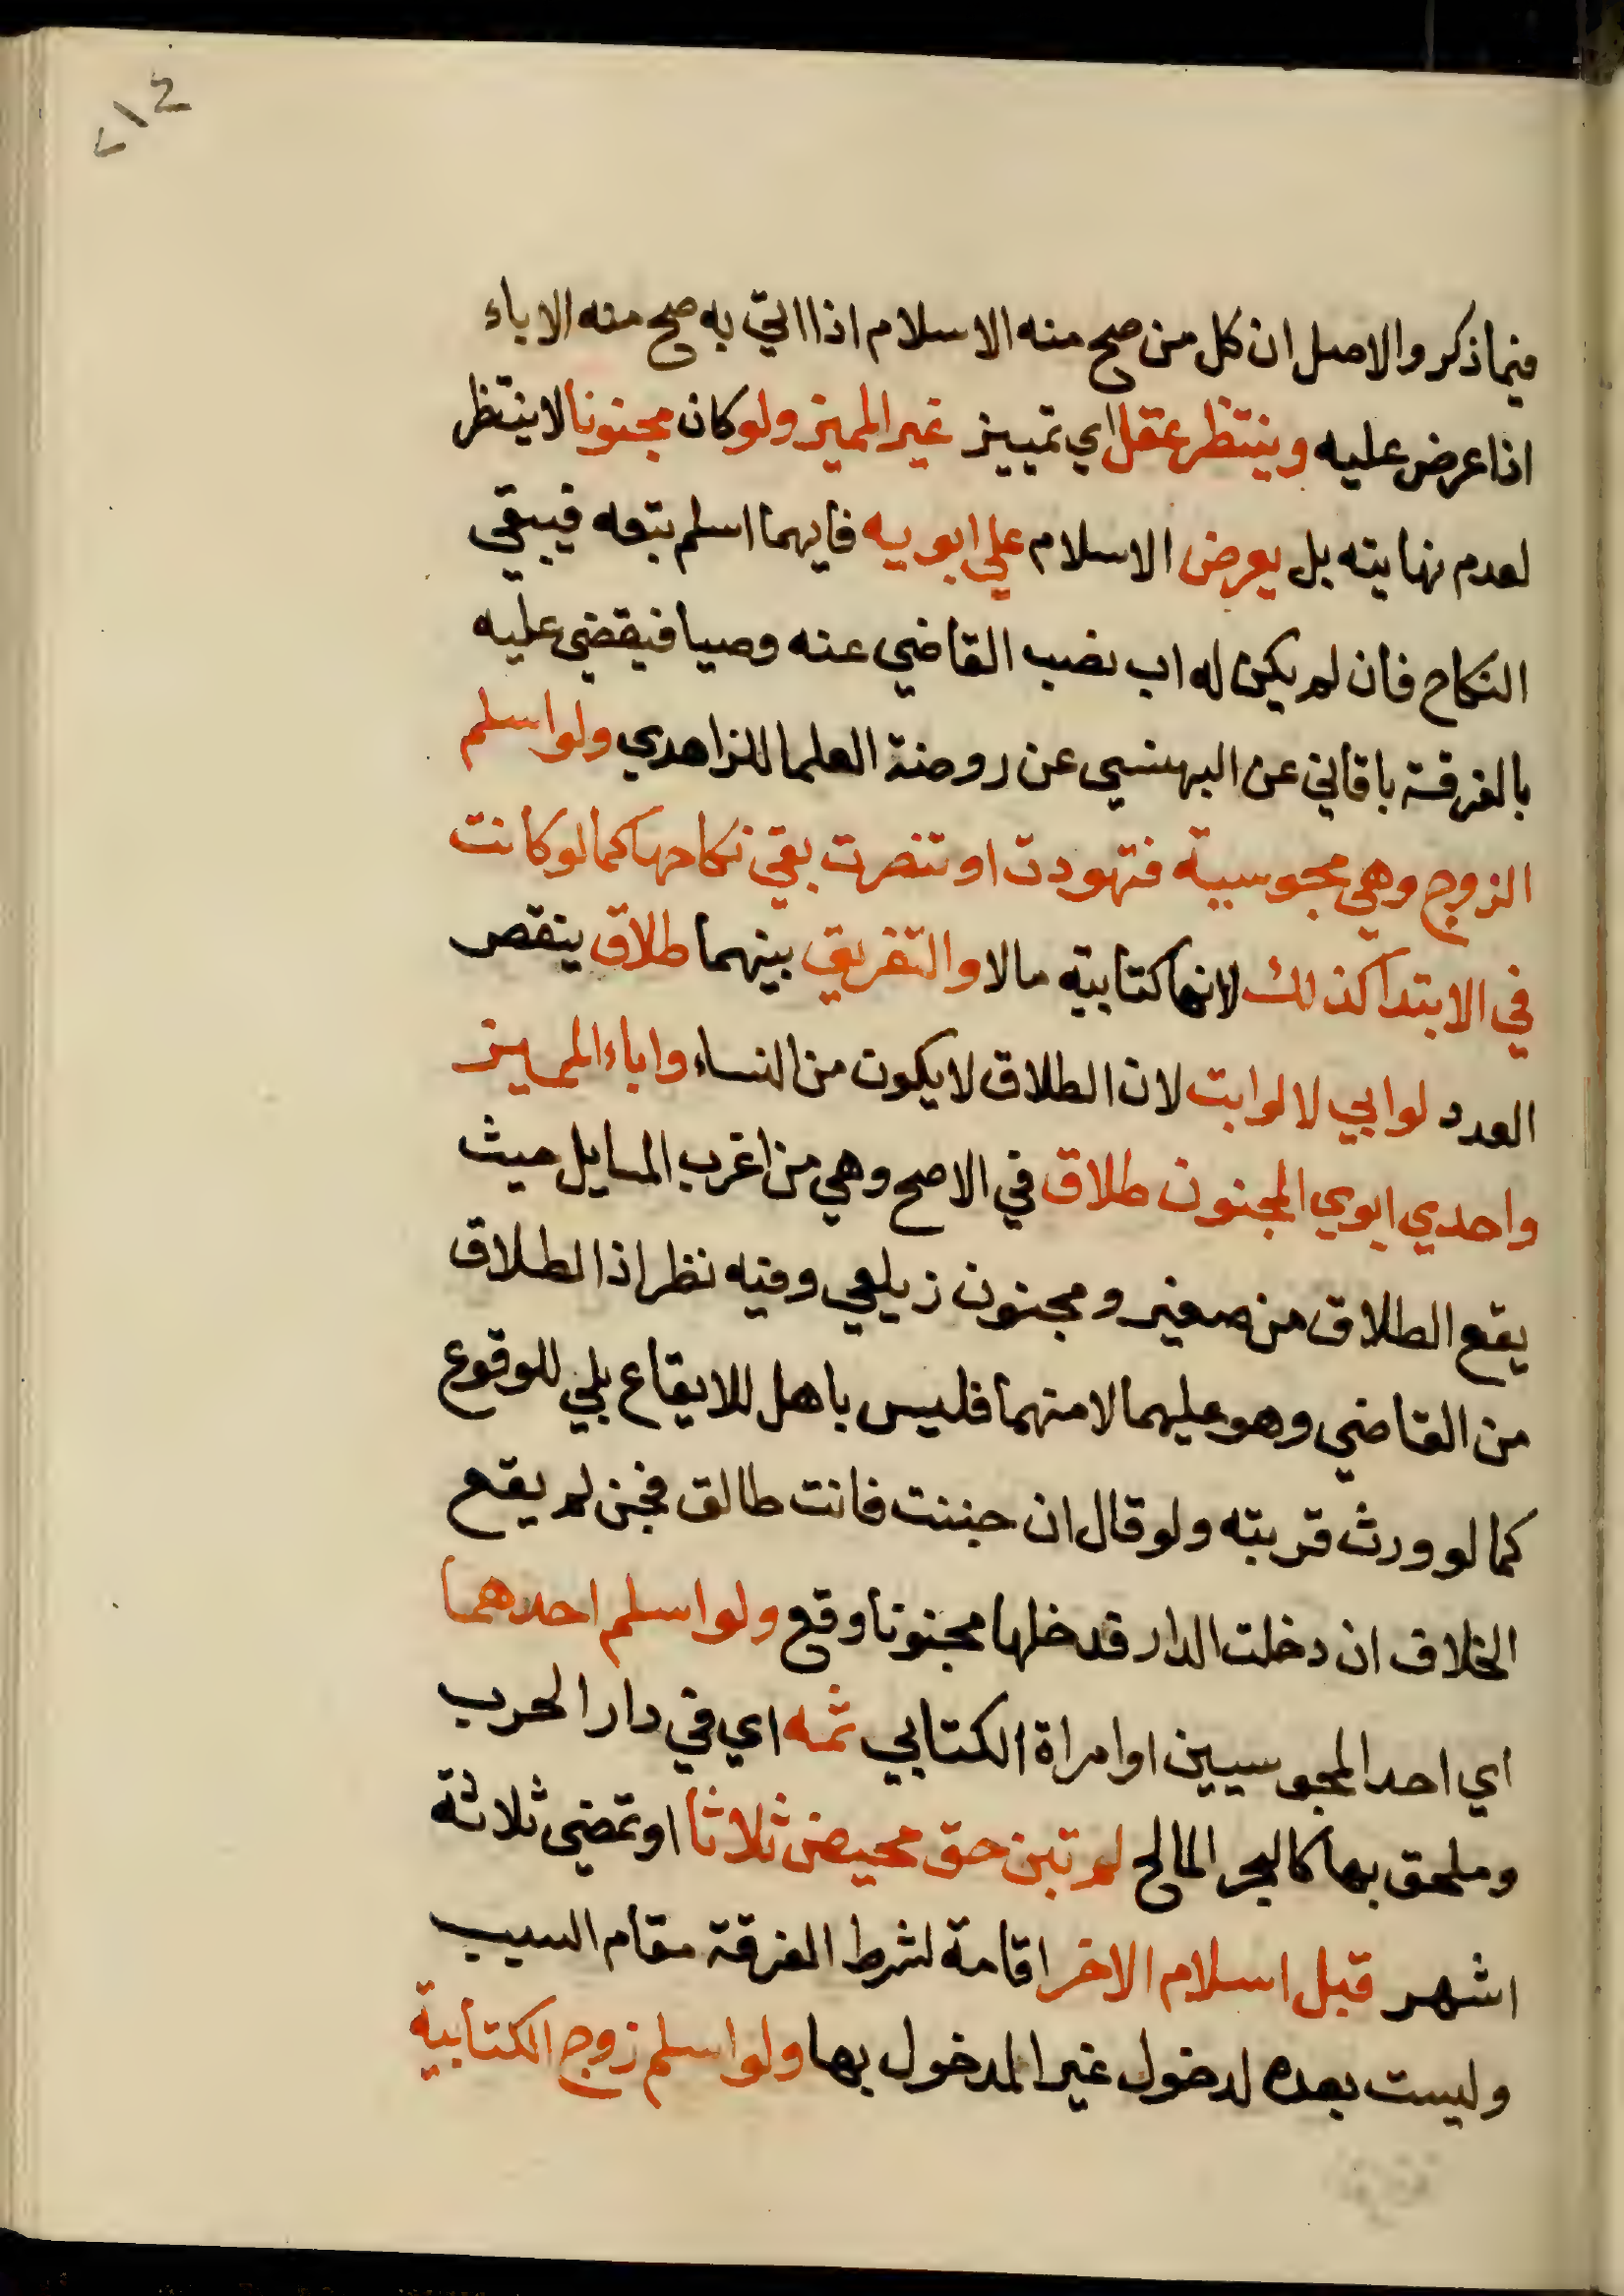 ٢١٤
فيما ذكر والاصل ان كل من صح منه الاسلام اذا اتي به صح منه الاباء
اذا عرض عليه وينتظر عقل اي تمييز غير المميز ولو كان مجنونا لا ينتظر
لعدم نهايته بل يعرض الاسلام علي ابويه فايهما اسلم تبعه فيبقي
النكاح فان لم يكن له اب نصب القاضي عنه وصيا فيقضي عليه
بالفرقة باقاني عن البهنسي عن روضة العلما للزاهدي ولو اسلم
الزوج وهي مجوسية فتهودت او تنصرت بقي نكاحها كما لو كانت
في الابتدا كذلك لانها كتابية مالا والتفريق بينهما طلاق ينقص
العدد لو ابي لا لو ابت لان الطلاق لا يكون من النساء واباء المميز
واحدي ابوي المجنون طلاق في الاصح وهي من اغرب المسايل حيث
يقع الطلاق من صغير ومجنون زيلعي وفيه نظر اذ الطلاق
من القاضي وهو عليهما لا منهما فليس باهل للايقاع بلي للوقوع
كما لو ورث قريبته ولو قال ان جننت فانت طالق فجن لم يقع
الخلاف ان دخلت الدار فدخلها مجنونا وقع ولو اسلم احدهما
اي احد المجوسيين او امراة الكتابي ثمه اي في دار الحرب
وملحق بها كالبحر المالح لم تبن حق محيض ثلاثا او تمضي ثلاثة
اشهر قبل اسلام الاخر اقامة لشرط الفرقة مقام السبب
وليست بعده لدخول غير المدخول بها ولو اسلم زوج الكتابية